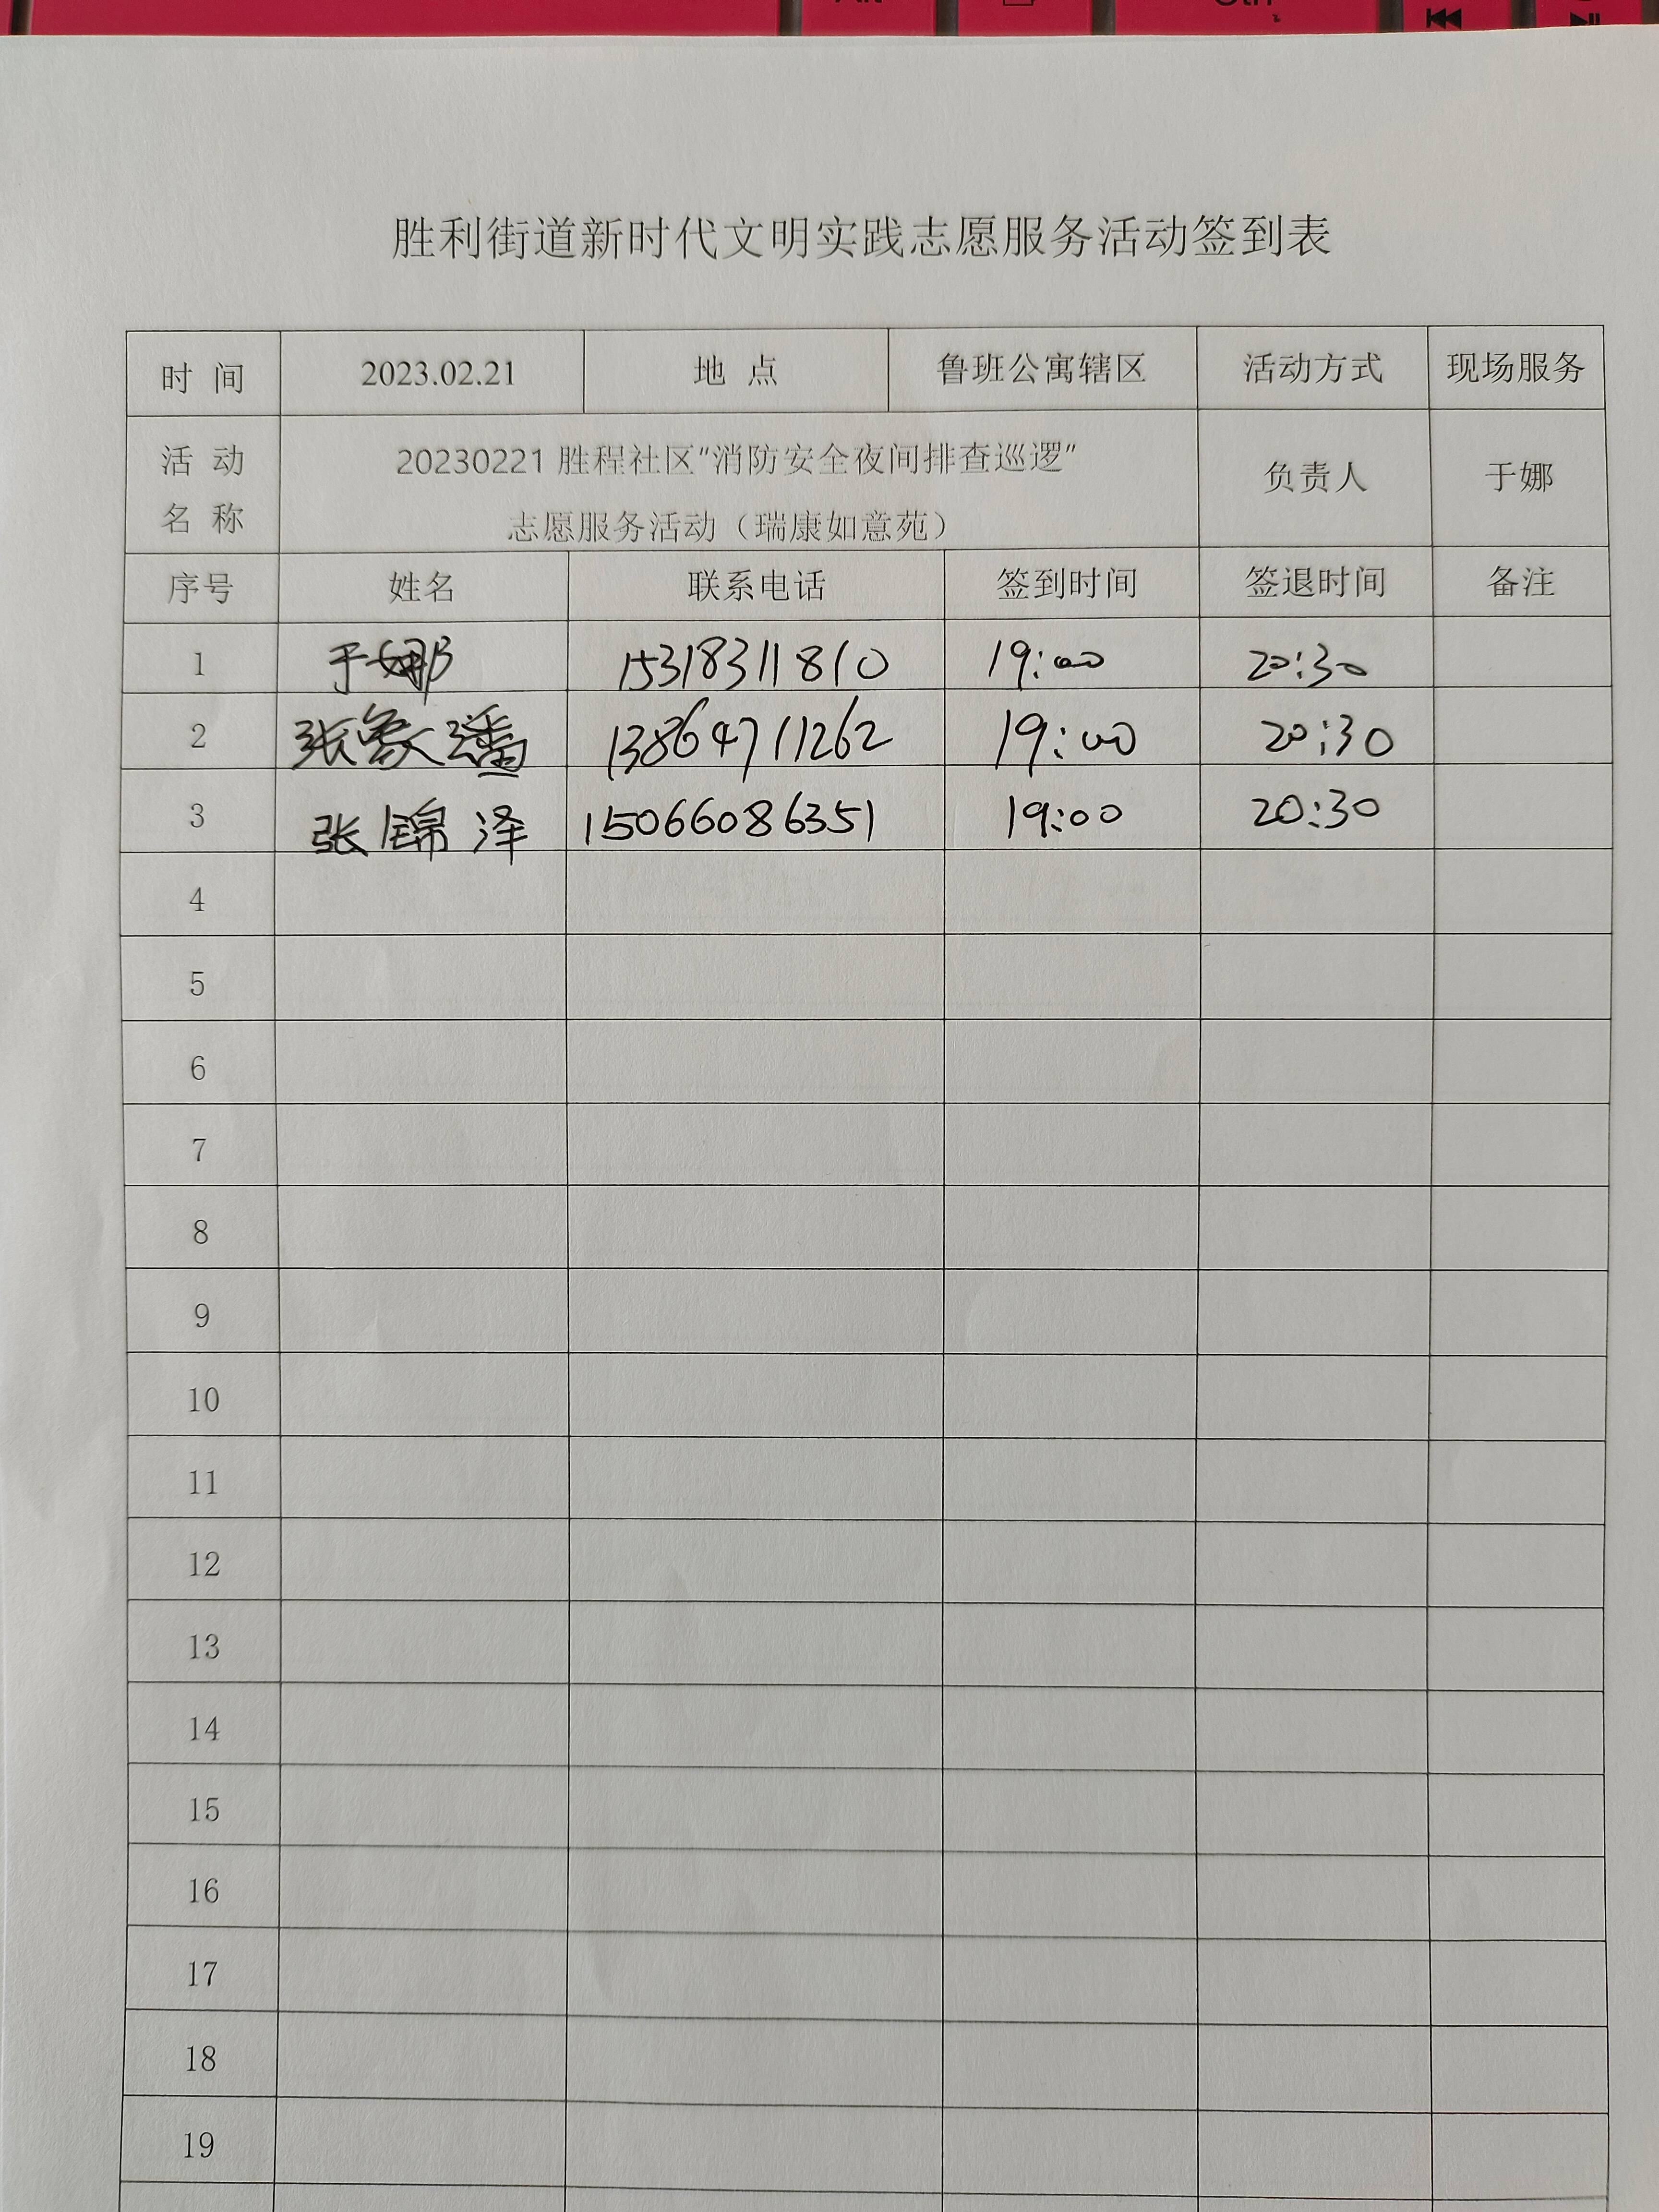 胜利街道新时代文明实践志愿服务活动签到表
时 间 2023.02.21 地 点 鲁班公寓辖区 活动方式 现场服务
活 动 名 称 20230221 胜程社区"消防安全夜间排查巡逻" 负责人 于娜
志愿服务活动（瑞康如意苑）
序号 姓名 联系电话 签到时间 签退时间 备注
1 于娜 15318311810 19:00 20:30
2 张 13864711262 19:00 20:30
3 张锦泽 15066086351 19:00 20:30
4
5
6
7
8
9
10
11
12
13
14
15
16
17
18
19